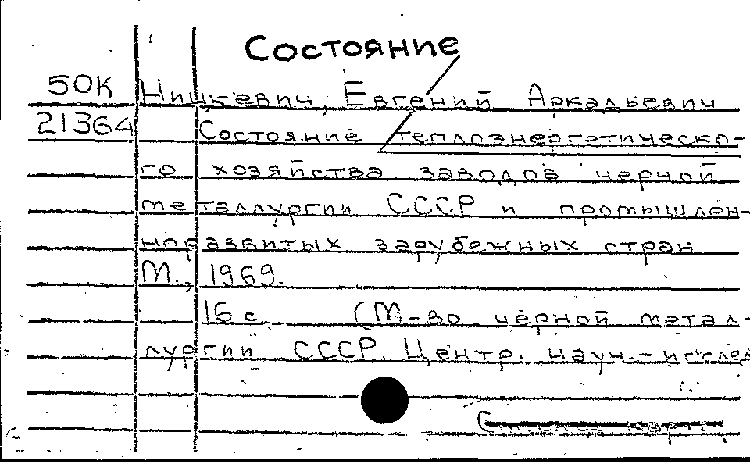 Состояние
50К Ницкевич, Евгений Аркадьевич
21364 Состояние теплоэнергетическо-
го хозяйства заводов черной
металлургии СССР и промышлен-
но развитых зарубежных стран
М., 1969.
16 с. (М-во черной метал-
лургии СССР. Центр. науч.-исслед